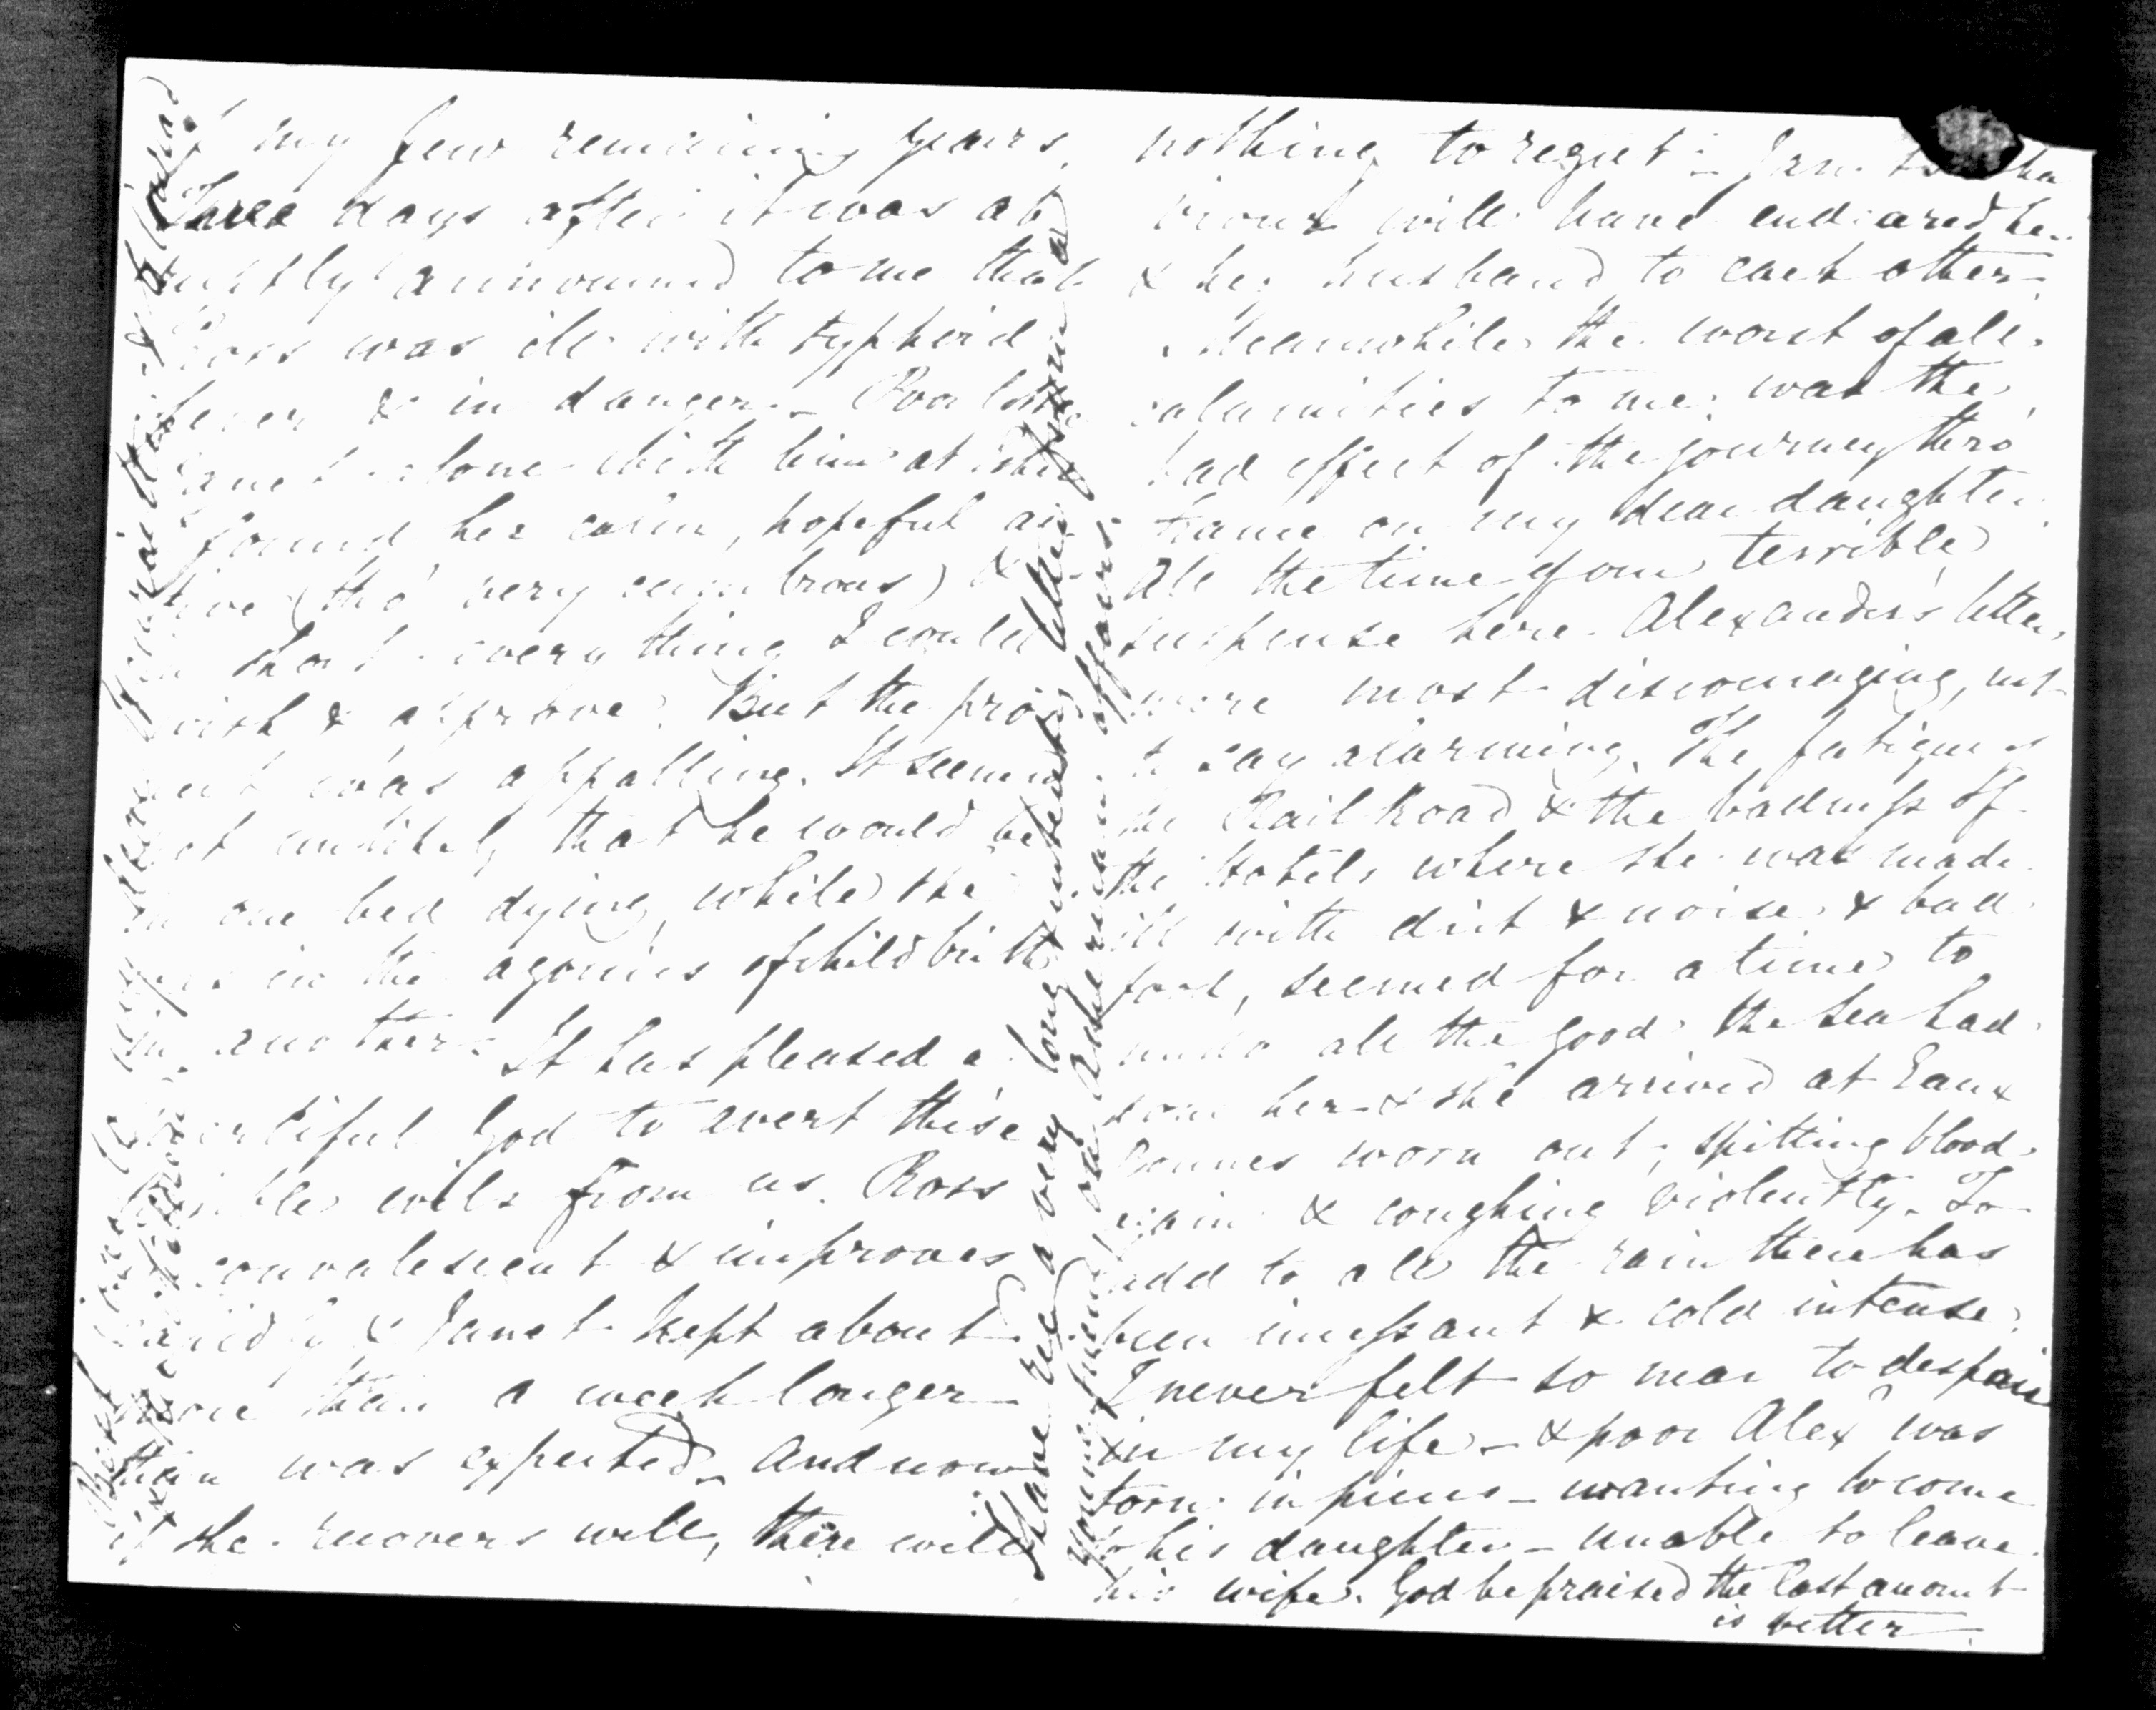 my few remaining years.
Three days after it was ab
ruptly announced to me that
Ross was ill with typhoid
fever & in danger - Poor little
Janet alone with him at
found her calm, hopeful
(tho' very ) &
short everything I could
wish & approve. But the
was appalling. It seemed
not unlikely that he would be
in one bed dying, while she
in the agonies of childbirth
in another - It has pleased a
merciful God to avert these
terrible evils from us. Ross
convalescent & improves
rapidly & Janet kept about
more than a week longer
than was expected. And now
if she recovers well, there will
nothing to regret - Janet's
viour will have endeared her
& her husband to each other -
Meanwhile the worst of all
calamities to me, was the
bad effect of the journey thro'
France on my dear daughter.
All the time of our terrible
suspense here Alexander's letters
were most discouraging, not
to say alarming. The fatigue of
the Rail Road & the badness of
the Hotels where she was made
ill with dirt & noise & bad
food, seemed for a time to
undo all the good the sea had
done her - & she arrived at Eaux
Bonnes worn out, spitting blood
again & coughing violently. To
add to all the rain there has
been incessant & cold intense.
I never felt so near to despair
in my life - & poor Alexr was
torn in pieces - wanting to come
to his daughter - unable to leave
his wife. God be praised the last account
is better -
I have recd a very long & interesting letter from a
young friend, on Indian affairs.